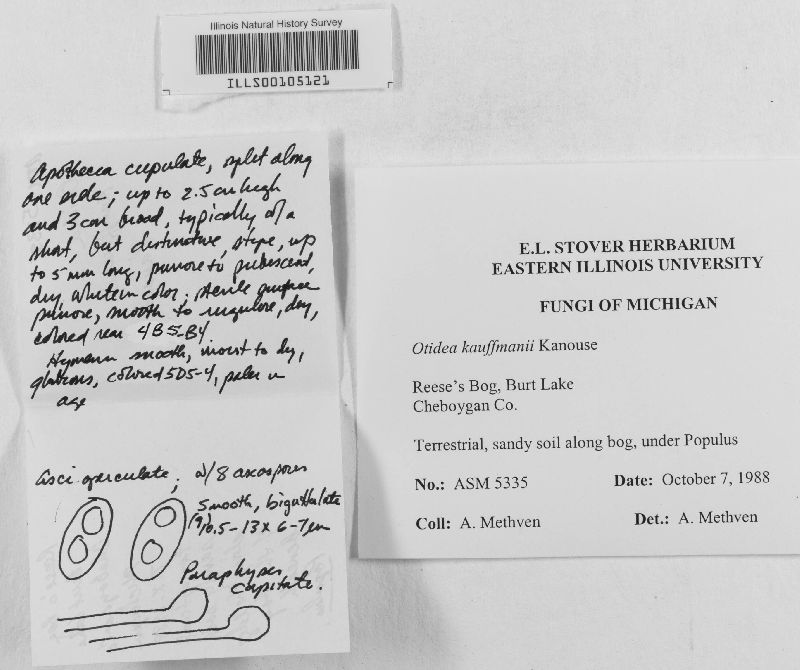 Illinois Natural History Survey
ILLS00105121
Apothecia cupulate, split along
one side; up to 2.5 cm high
and 3 cm broad, typically w/a
short, but distinctive, stipe, up
to 5 mm long, pruinose to pubescent,
dry, white in color; sterile surface
pruinose, smooth to rugulose, dry,
colored near 4B5-B4.
Hymenium smooth, moist to dry,
glabrous, colored 5D5-4, paler in
age
Asci operculate; w/8 ascospores
smooth, biguttulate
(9)10.5-13 x 6-7 µm
Paraphyses
capitate.
E.L. STOVER HERBARIUM
EASTERN ILLINOIS UNIVERSITY
FUNGI OF MICHIGAN
Otidea kauffmanii Kanouse
Reese's Bog, Burt Lake
Cheboygan Co.
Terrestrial, sandy soil along bog, under Populus
No.: ASM 5335 Date: October 7, 1988
Coll: A. Methven Det.: A. Methven